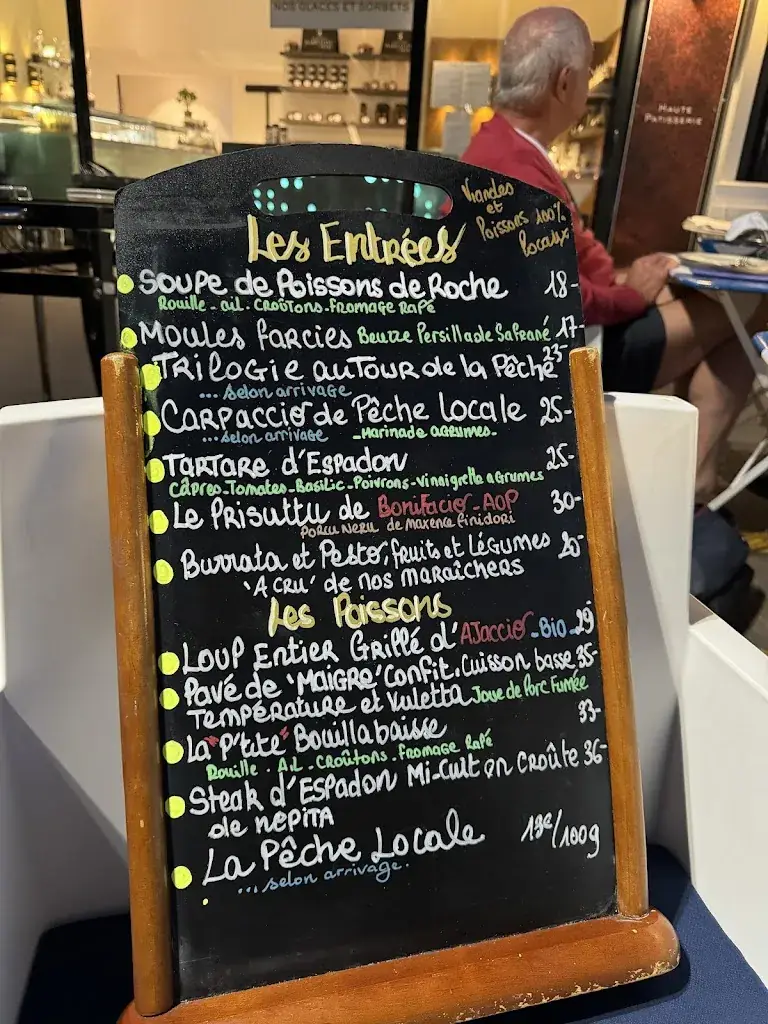 NOS GLACES ET SORBETS
HAUTE
PATISSERIE
Viandes
et
Poissons 100%
Locaux
Les Entrées
Soupe de Poissons de Roche 18-
Rouille - ail - Croûtons - Fromage Rapé
Moules farcies Beurre Persillade Safrané 17-
Trilogie autour de la Pêche 23-
... selon arrivage
Carpaccio de Pêche Locale 25-
... selon arrivage - Marinade agrumes -
Tartare d'Espadon 25-
Câpres - Tomates - Basilic - Poivrons - Vinaigrette agrumes
Le Prisuttu de Bonifacio - AOP 30-
Porcu Neru de Maxence Finidori
Burrata et Pesto, fruits et Légumes 20-
'A CRU' de nos maraîchers
Les Poissons
Loup Entier Grillé d'Ajaccio - Bio - 29
Pavé de 'Maigre' Confit. Cuisson basse 35-
Température et Vuletta Joue de Porc Fumée
La "P'tite" Bouillabaisse 33-
Rouille . Ail . Croûtons . fromage Rapé
Steak d'Espadon Mi-Cuit en Croûte 36-
de nepita
La Pêche Locale /100g
... selon arrivage.